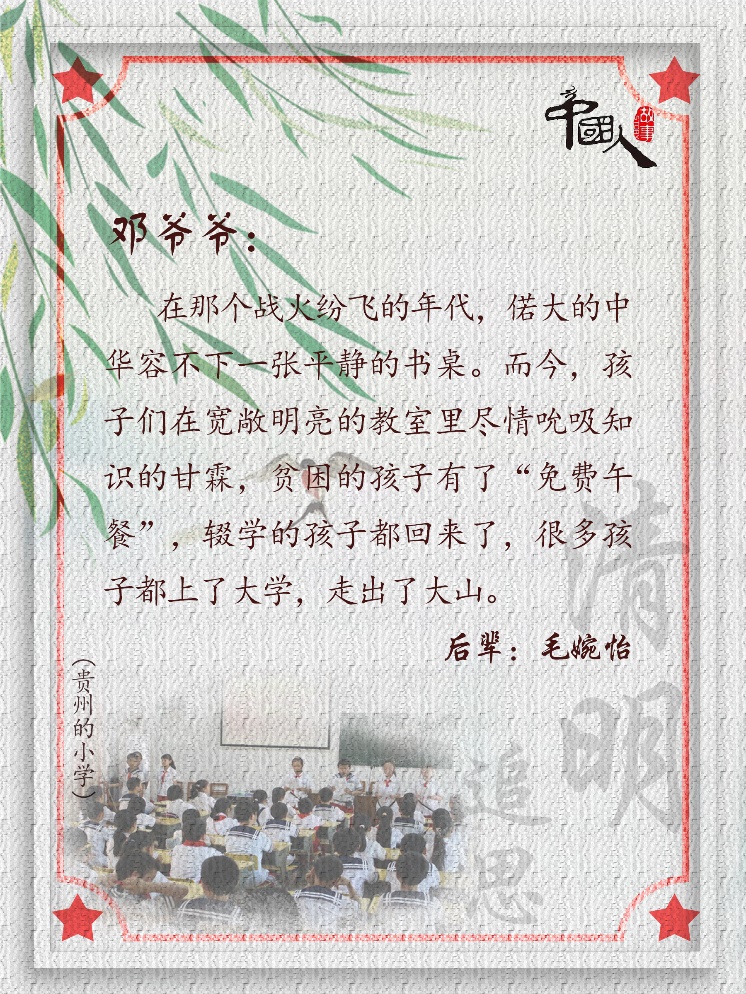 中國人
故事
邓爷爷：
在那个战火纷飞的年代，偌大的中
华容不下一张平静的书桌。而今，孩
子们在宽敞明亮的教室里尽情吮吸知
识的甘霖，贫困的孩子有了“免费午
餐”，辍学的孩子都回来了，很多孩
子都上了大学，走出了大山。
后辈：毛婉怡
清明
追思
（贵州的小学）